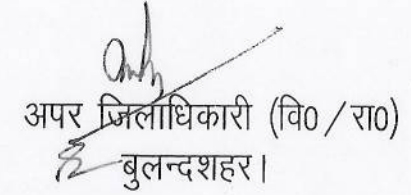 अपर जिलाधिकारी (वि0 / रा0)
बुलन्दशहर।